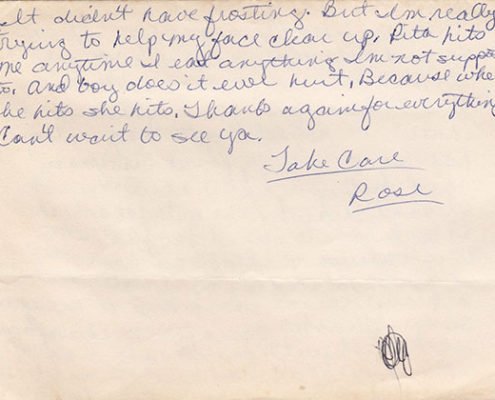 It didn't have frosting. But I'm really
trying to help my face clear up. Rita hits
me anytime I eat anything I'm not suppos
to. And boy does it ever hurt, Because whe
he hits she hits. Thanks again for everything
Can't wait to see ya.
Take Care
Rose